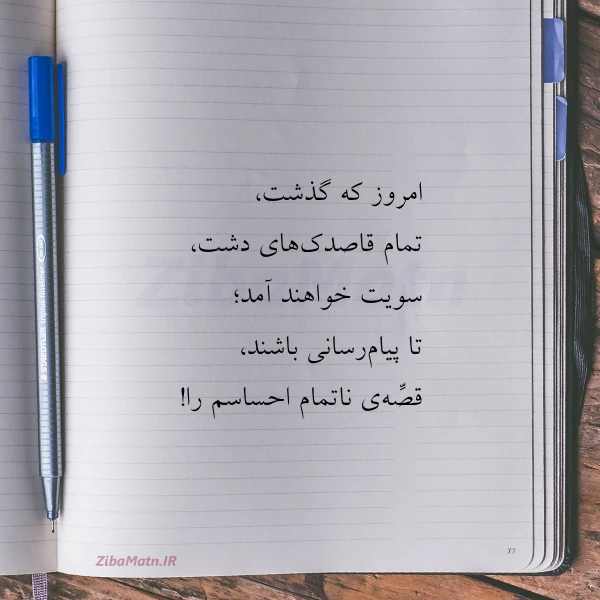 امروز که گذشت،
تمام قاصدک‌های دشت،
سویت خواهند آمد؛
تا پیام‌رسانی باشند،
قصّه‌ی ناتمام احساسم را!
ZibaMatn.IR